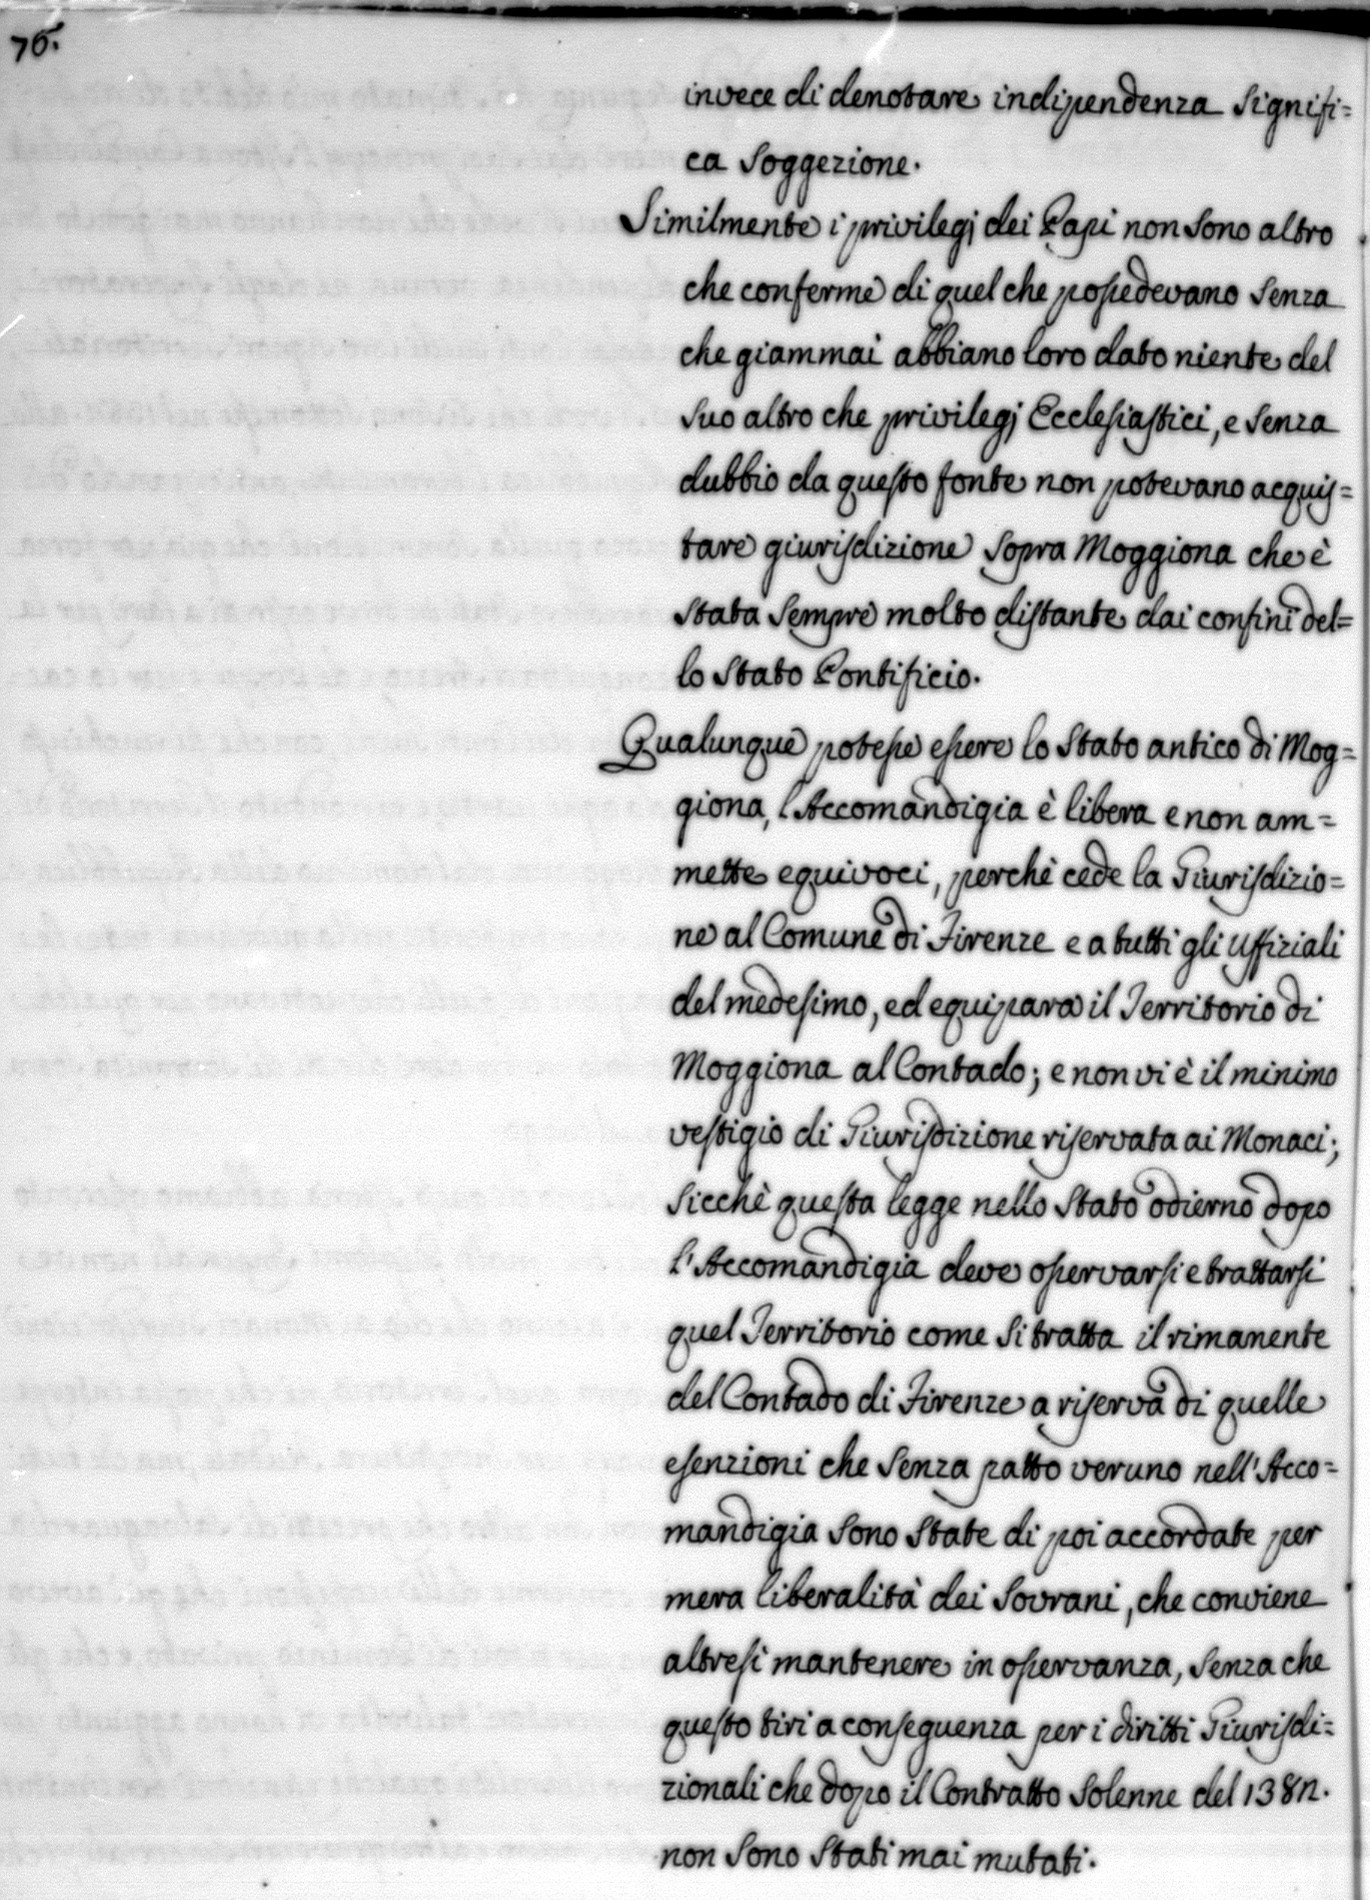 76.
invece di denotare indipendenza signifi=
ca soggezione.
Similmente i privilegj dei Papi non sono altro
che conferme di quel che possedevano senza
che giammai abbiano loro dato niente del
suo altro che privilegj Ecclesiastici, e senza
dubbio da questo fonte non potevano acquis=
tare giurisdizione sopra Moggiona che è
stata sempre molto distante dai confini del=
lo Stato Pontificio.
Qualunque potesse essere lo Stato antico di Mog=
giona, l'Accomandigia è libera e non am=
mette equivoci, perchè cede la Giurisdizio=
ne al Comune di Firenze e a tutti gli Uffiziali
del medesimo, ed equipara il Territorio di
Moggiona al Contado; e non vi è il minimo
vestigio di Giurisdizione riservata ai Monaci;
sicchè questa legge nello Stato odierno dopo
l'Accomandigia deve osservarsi e trattarsi
quel Territorio come si tratta il rimanente
del Contado di Firenze a riserva di quelle
esenzioni che senza patto veruno nell'Acco=
mandigia sono state di poi accordate per
mera liberalità dei Sovrani, che conviene
altresì mantenere in osservanza, senza che
questo tiri a conseguenza per i diritti Giurisdi=
zionali che dopo il Contratto solenne del
non sono stati mai mutati.